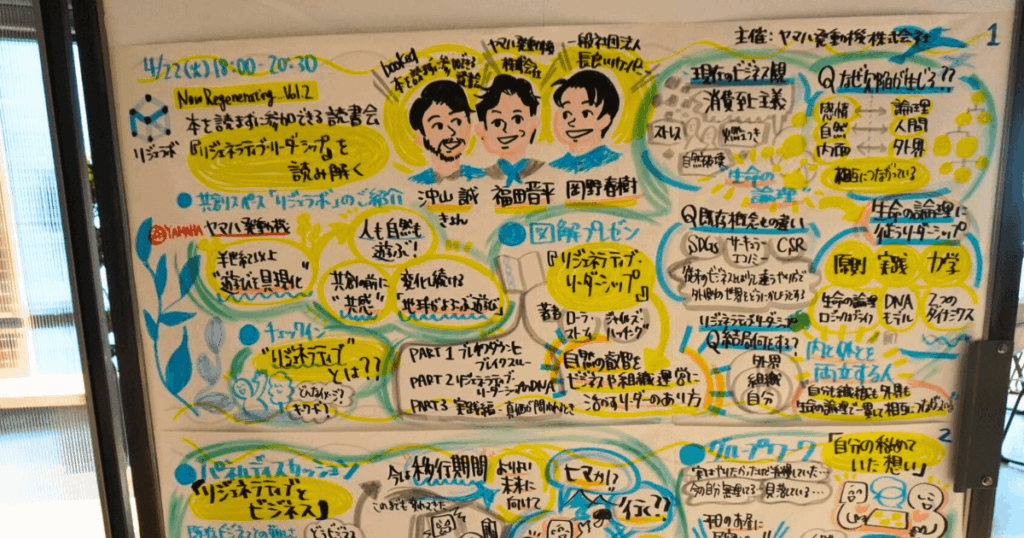 4/22(火)18:00-20:30
Now Regenerating Vol.2
本を読まずに参加できる読書会
リジェラボ
『リジェネラティブ・リーダーシップ』を
読み解く
booked
本を読まずに参加できる
読書会
ヤマハ発動機
株式会社
一般社団法人
沖山 誠
きょん
福田晋平
岡野春樹
主催：ヤマハ発動機株式会社
1
共創スペース「リジェラボ」のご紹介
YAMAHA ヤマハ発動機
半世紀以上
"遊びを具現化"
人も自然も
遊ぶ!
共創の前に
"共感"
変化し続ける
「地球がよろこぶ遊び」
チェックイン
"リジェネラティブ"
とは??
図解プレゼン
『リジェネラティブ・
リーダーシップ』
著者
ローラ・
ストーム
ジャイルズ・
ハッチンズ
PART 1 ブレイクダウンと
ブレイクスルー
PART 2 リジェネラティブ・
リーダーシップのDNA
PART 3 実践編
自然の叡智を
ビジネスや組織運営に
活かすリーダーのあり方
現在のビジネス観
消費至上主義
ストレス
燃えつき
自然破壊
"生命の
論理"
Qなぜ分断が生じる??
感情 ↔ 論理
自然 ↔ 人間
内面 ↔ 外界
相互につながっている
Q既存概念との違い
SDGs サーキュラー
エコノミー CSR
生命の論理に
従うリーダーシップ
原則 実践 力学
生命の論理
DNA
モデル
7つの
ダイナミクス
リジェネラティブリーダーシップ
Q結局何をする?
外界
組織
自分
内と外とを
両立する人
自分も組織も外界も
生命の論理で一貫して相互につながっている
2
パネルディスカッション
「リジェネラティブと
ビジネス」
今は移行期間
よりよい
未来に
向けて
ヒマか!?
行く??
グループワーク
「自分の秘めて
いた想い」